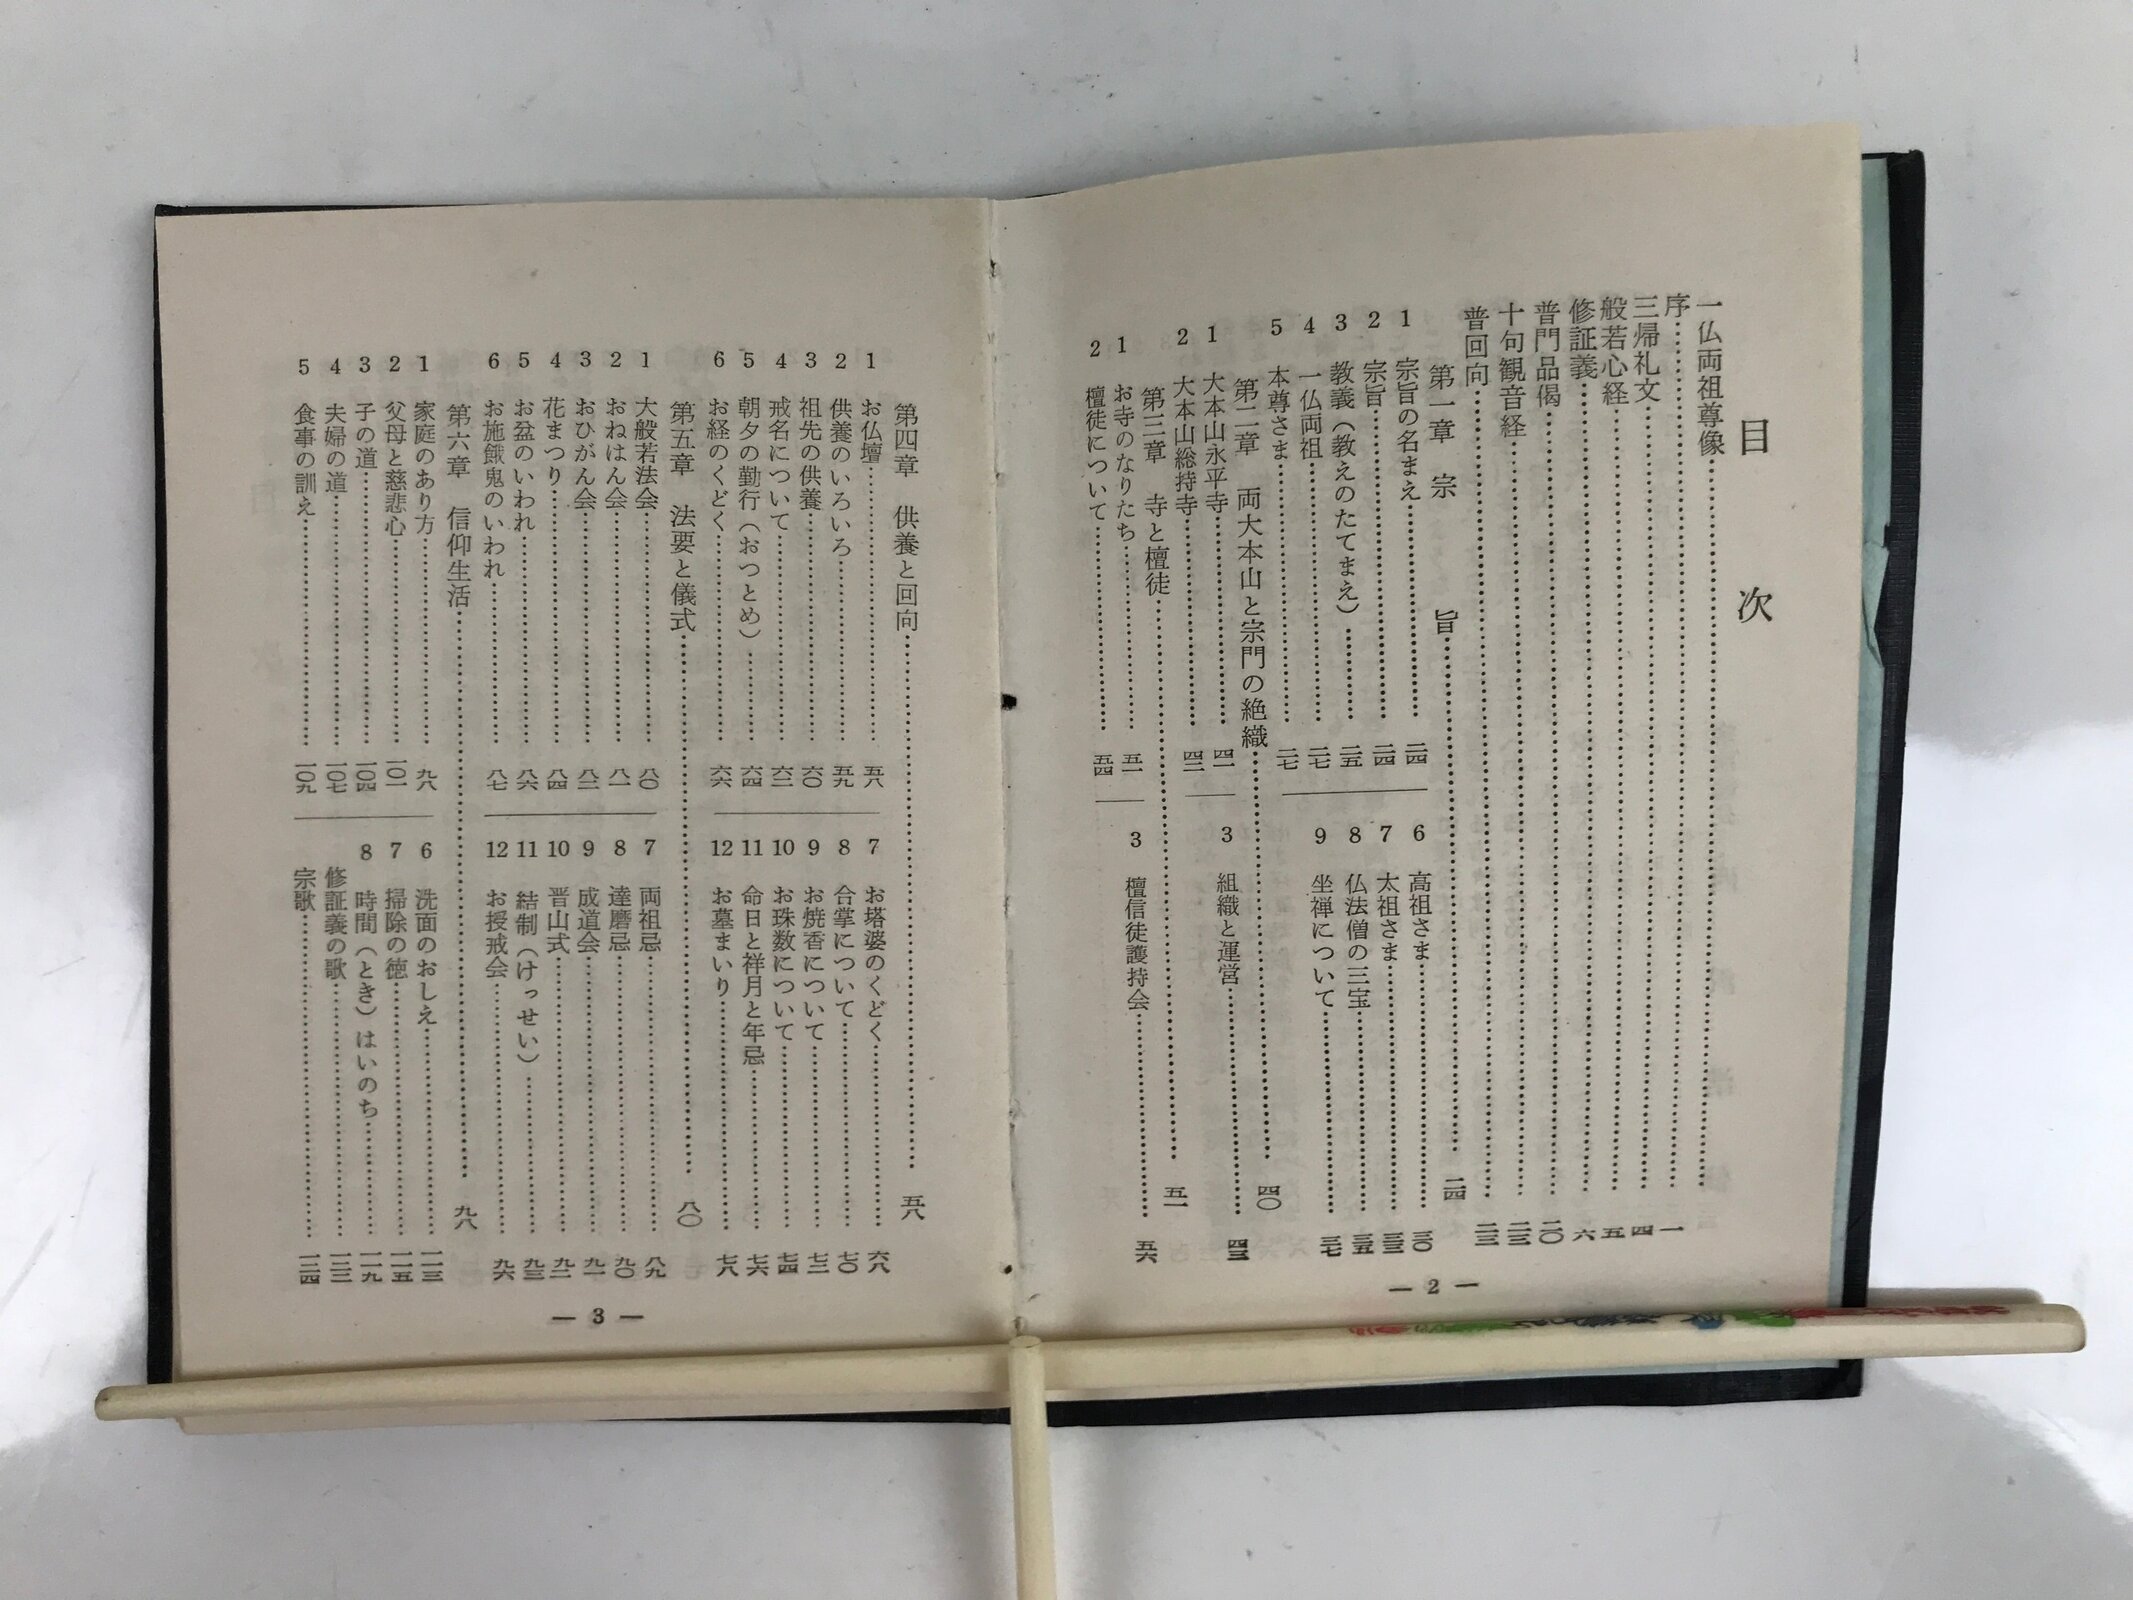 目次
一仏両祖尊像
序 一
三帰礼文 四
般若心経 五
修証義 六
普門品偈 二〇
十句観音経 二三
普回向 二三
第一章 宗旨 二四
1 宗旨の名まえ 二四
2 宗旨 二四
3 教義（教えのたてまえ） 二五
4 一仏両祖 二七
5 本尊さま 二七
6 高祖さま 三〇
7 太祖さま 三三
8 仏法僧の三宝 三五
9 坐禅について 三七
第二章 両大本山と宗門の絶織 四〇
1 大本山永平寺 四一
2 大本山総持寺 四二
3 組織と運営 四三
第三章 寺と檀徒 五一
1 お寺のなりたち 五一
2 檀徒について 五四
3 檀信徒護持会 五六
— 2 —
第四章 供養と回向 五八
1 お仏壇 五八
2 供養のいろいろ 五九
3 祖先の供養 六〇
4 戒名について 六二
5 朝夕の勤行（おつとめ） 六四
6 お経のくどく 六六
7 お塔婆のくどく 六八
8 合掌について 七〇
9 お焼香について 七二
10 お珠数について 七四
11 命日と祥月と年忌 七六
12 お墓まいり 七八
第五章 法要と儀式 八〇
1 大般若法会 八〇
2 おねはん会 八一
3 おひがん会 八二
4 花まつり 八四
5 お盆のいわれ 八六
6 お施餓鬼のいわれ 八七
7 両祖忌 八九
8 達磨忌 九〇
9 成道会 九一
10 晋山式 九二
11 結制（けっせい） 九三
12 お授戒会 九六
第六章 信仰生活 九八
1 家庭のあり方 九八
2 父母と慈悲心 一〇一
3 子の道 一〇四
4 夫婦の道 一〇七
5 食事の訓え 一〇九
6 洗面のおしえ 一一三
7 掃除の徳 一一五
8 時間（とき）はいのち 一一九
修証義の歌 一二三
宗歌 一二四
— 3 —